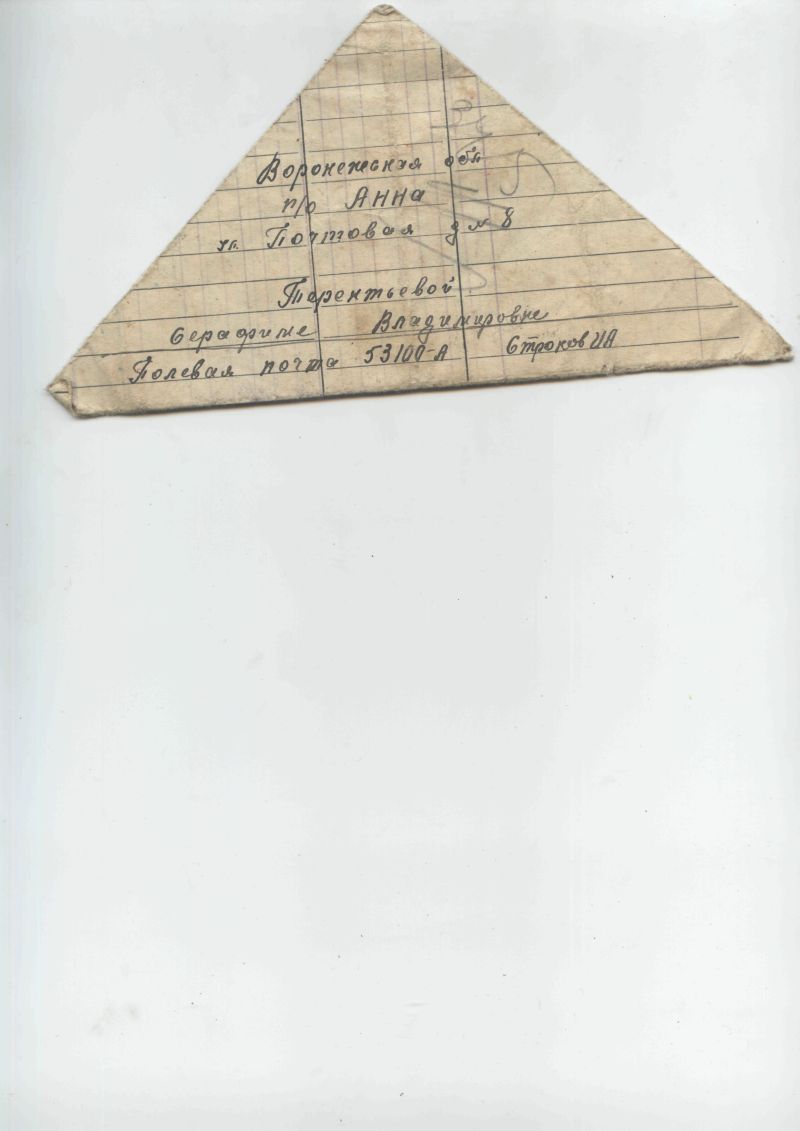 Воронежская обл
п/о Анна
ул. Почтовая д № 8
Терентьевой
Серафиме Владимировне
Полевая почта 53100-А Строков ИА